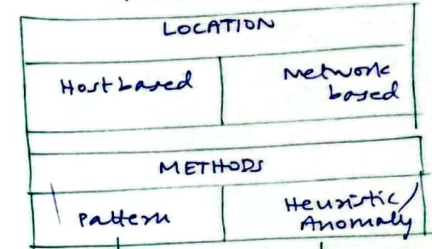 LOCATION
Host based
Network
based
METHODS
Pattern
Heuristic/
Anomaly